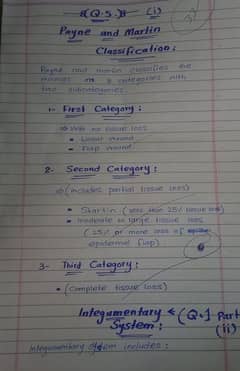 (Q.5.) (i)
Payne and Martin
Classification:
Payne and martin classifies the
wounds in 3 categories with
two subcategories.
1- First Category:
⇒ With no tissue loss
• Linear wound
• Flap wound
2- Second Category:
⇒ (includes partial tissue loss)
• Startin (less than 25% tissue loss)
• moderate to large tissue loss
(25% or more loss of
epidermal flap)
3- Third Category:
• (Complete tissue loss)
Integumentary (Q.] Part
System: (ii)
Integumentary system includes: